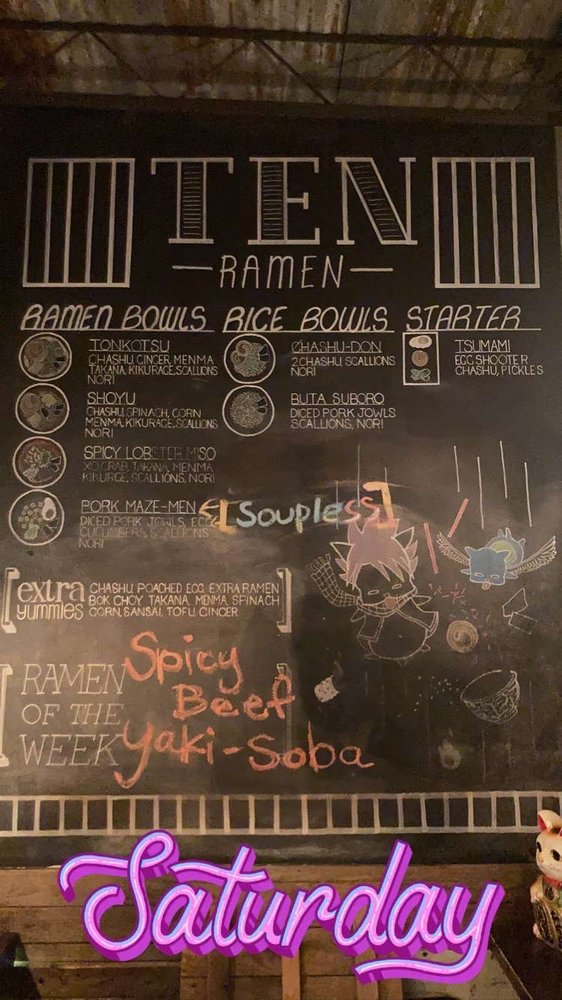 TEN
RAMEN
RAMEN BOWLS
TONKOTSU
CHASHU, GINGER, MENMA
TAKANA, KIKURAGE, SCALLIONS
NORI
SHOYU
CHASHU, SPINACH, CORN
MENMA, KIKURAGE, SCALLIONS
NORI
SPICY LOBSTER MISO
XO CRAB, TAKANA, MENMA
KIKURGE, SCALLIONS, NORI
PORK MAZE-MEN
[Soupless]
DICED PORK JOWLS, EGG
CUCUMBERS, SCALLIONS
NORI
RICE BOWLS
CHASHU-DON
2 CHASHU, SCALLIONS
NORI
BUTA SUBORO
DICED PORK JOWLS
SCALLIONS, NORI
STARTER
TSUMAMI
EGG SHOOTER
CHASHU, PICKLES
extra
yummies
CHASHU, POACHED EGG, EXTRA RAMEN
BOK CHOY, TAKANA, MENMA, SPINACH
CORN, SANSAI, TOFU, GINGER
RAMEN
OF THE
WEEK
Spicy
Beef
Yaki-Soba
Saturday